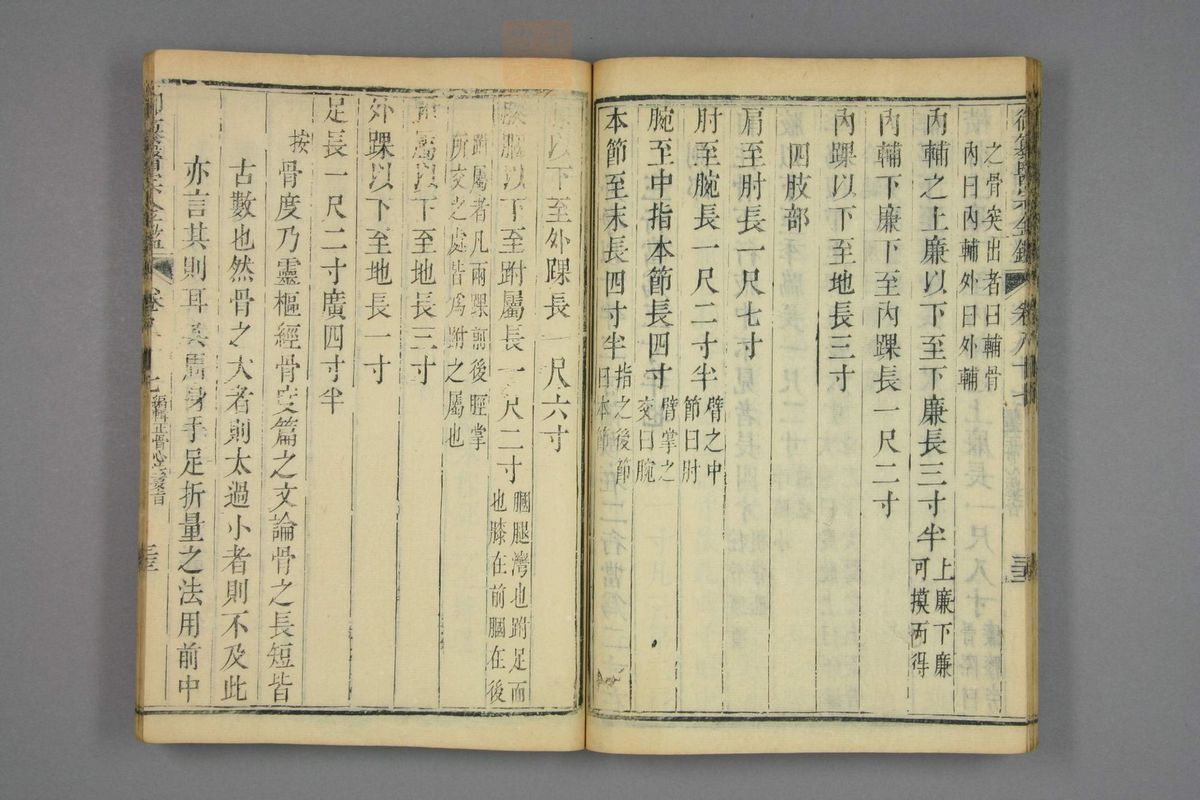 之骨突出者曰輔骨
內曰內輔外曰外輔
內輔之上廉以下至下廉長三寸半上廉下廉
可摸而得
內輔下廉下至內踝長一尺二寸
內踝以下至地長三寸
四肢部
肩至肘長一尺七寸
肘至腕長一尺二寸半臂之中
節曰肘
腕至中指本節長四寸臂掌之
交曰腕
本節至末長四寸半指之後節
曰本節
以下至外踝長一尺六寸
膝膕以下至跗屬長一尺二寸膕腿灣也跗足面
也膝在前膕在後
跗屬者凡兩踝前後脛掌
所交之處皆為跗之屬也
屬以下至地長三寸
外踝以下至地長一寸
足長一尺二寸廣四寸半
按骨度乃靈樞經骨度篇之文論骨之長短皆
古數也然骨之大者則太過小者則不及此
亦言其則耳其廣身手足折量之法用前中